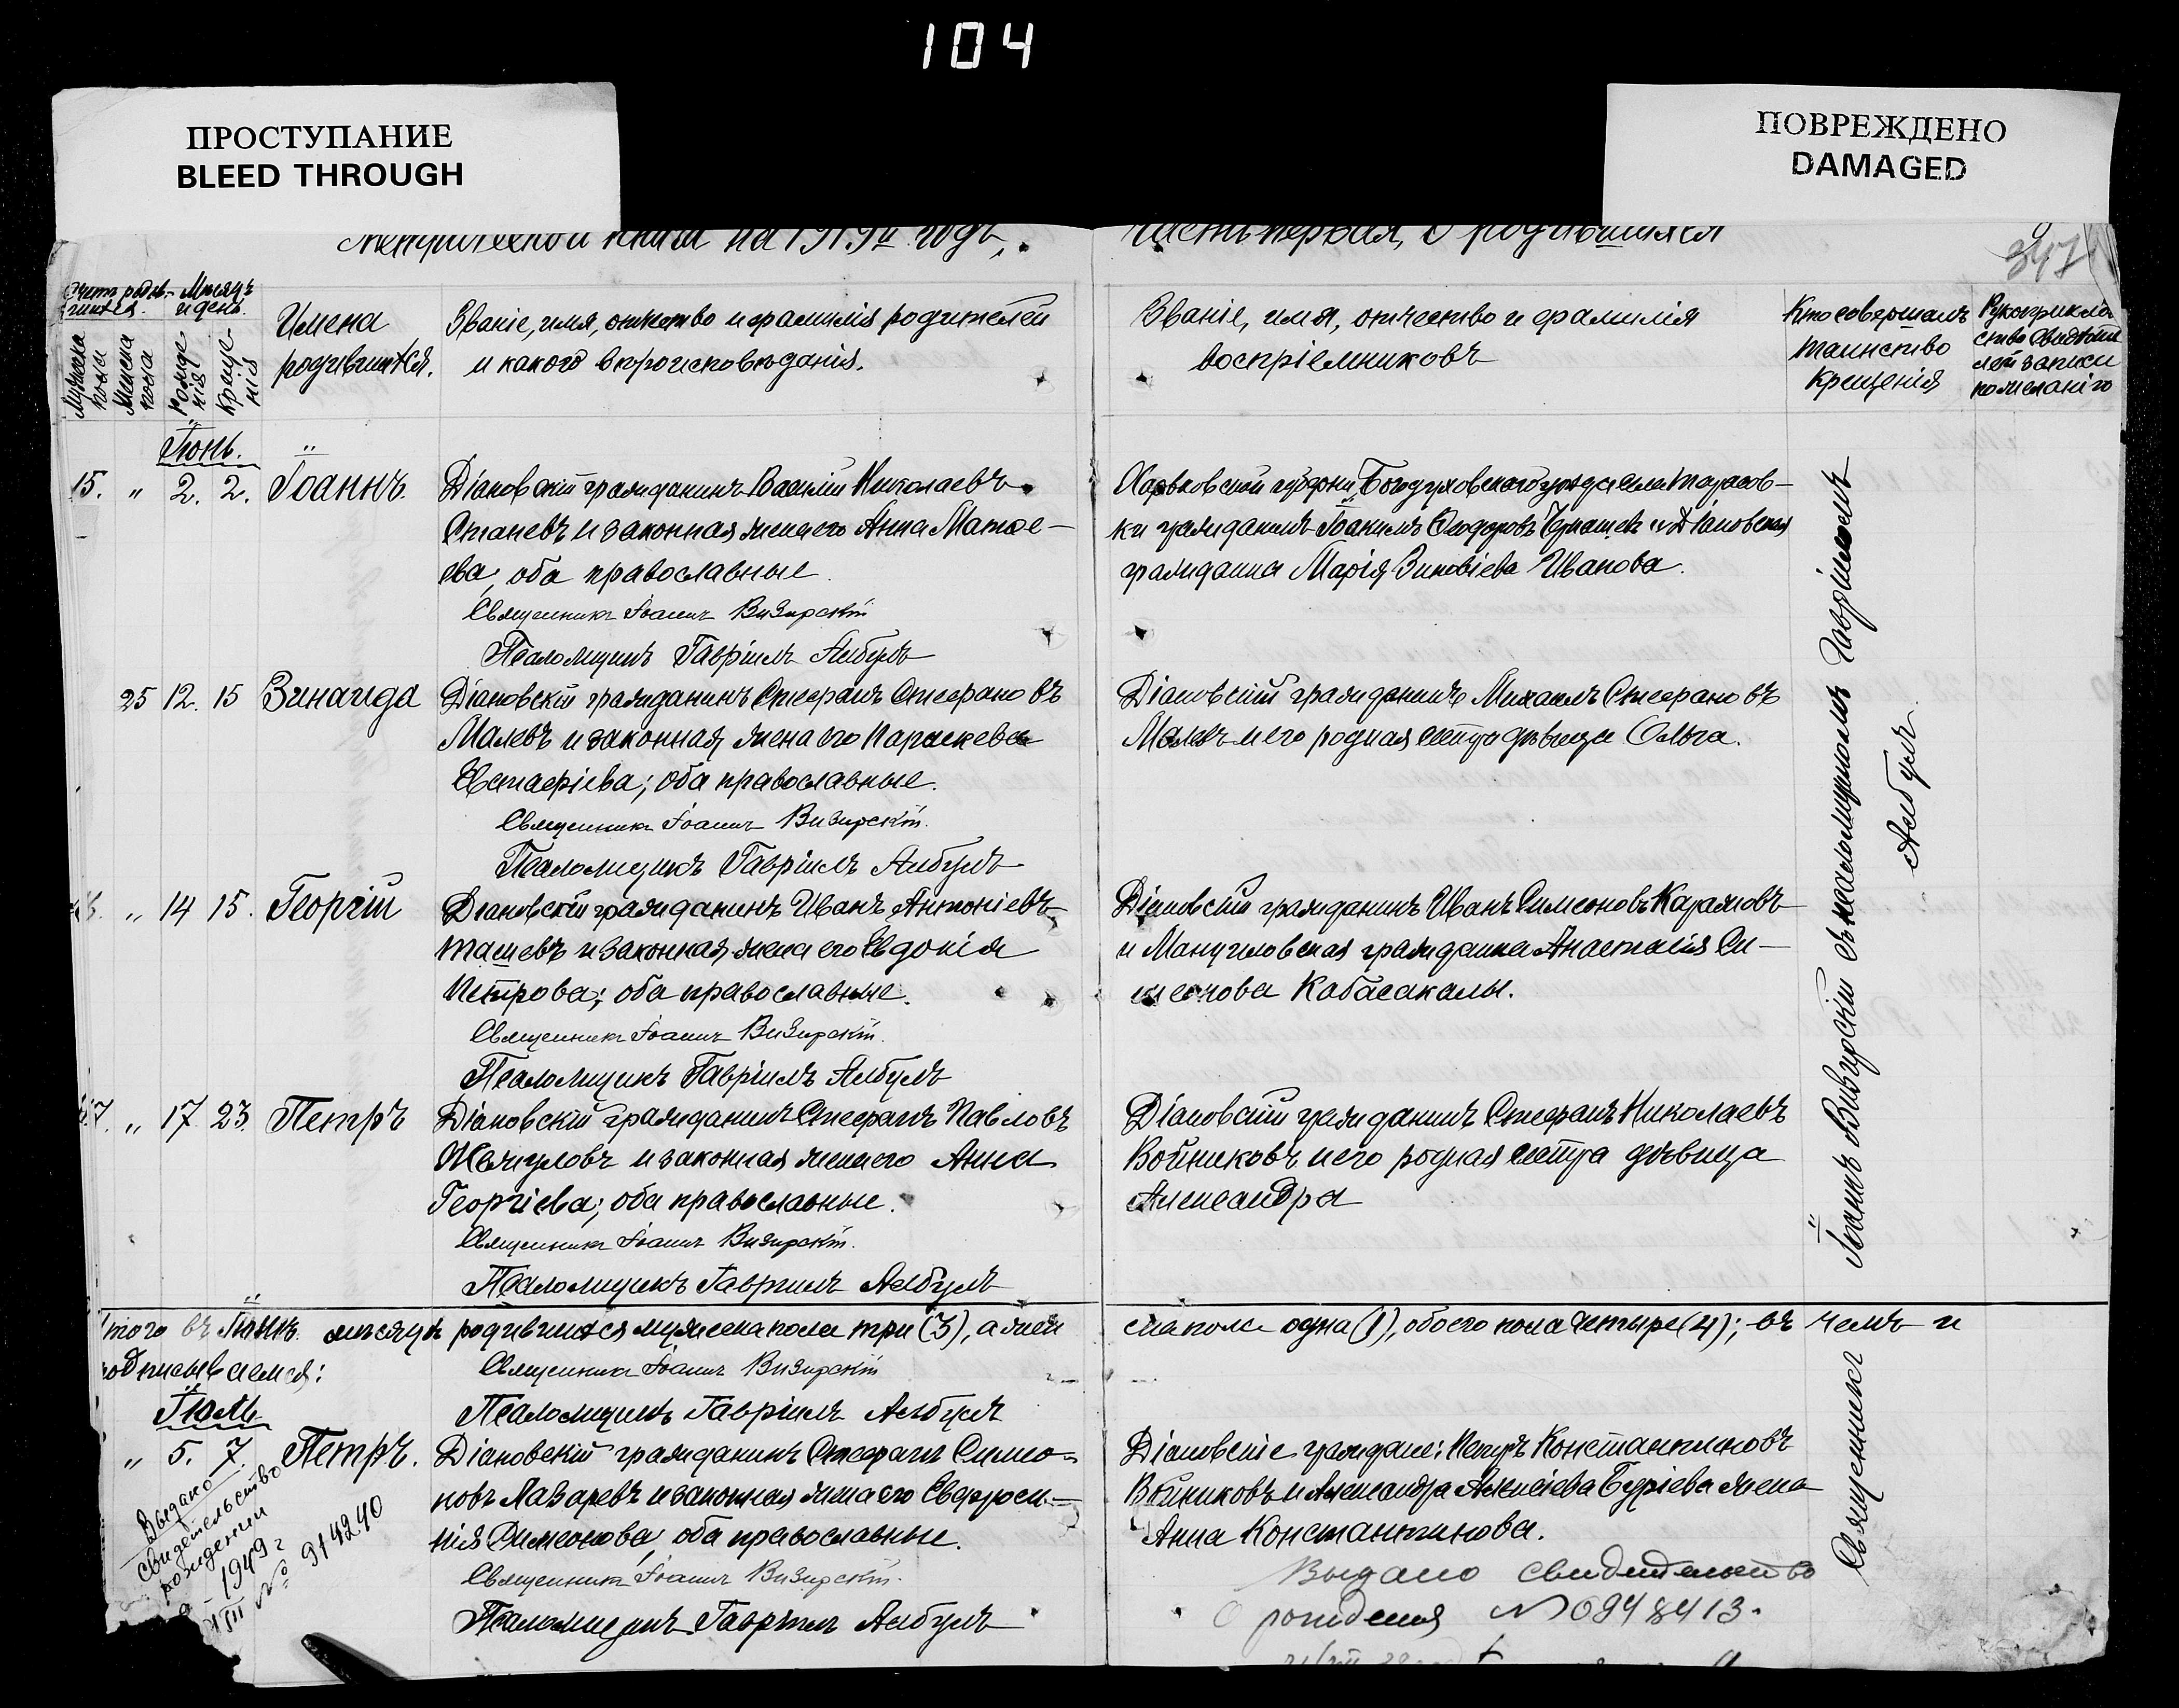 104
ПРОСТУПАНИЕ
BLEED THROUGH
ПОВРЕЖДЕНО
DAMAGED
Метрической книги на 1919й годъ,
Часть первая, о родившихся
347
Счетъ родив-
шихся.
Мѣсяцъ
и день.
Мужеска
пола
Женска
пола
Рожде
нія
Креще-
нія
Имена
родившихся.
Званіе, имя, отчество и фамилія родителей
и какого вѣроисповѣданія.
Званіе, имя, отчество и фамилія
воспріемниковъ
Кто совершалъ
таинство
крещенія
Рукоприклад
ство свидѣте
лей записи
по желанію
Іюнь.
15. " 2. 2. Іоаннъ.
Діановскій гражданинъ Василій Николаевъ
Станевъ и законная жена его Анна Матѳе-
ева, оба православные.
Священникъ Іоаннъ Визирскій
Псаломщикъ Гавріилъ Албулъ
Харьковской губерніи, Богодуховскаго уѣзда села Тарасов-
ки гражданинъ Іоакимъ Ѳеодоровъ и Діановская
гражданка Марія Зиновіева Иванова.
25 12. 15 Зинаида
Діановскій гражданинъ Стефанъ Стефановъ
Малевъ и законная жена его Параскева
Евстафіева; оба православные.
Священникъ Іоаннъ Визирскій.
Псаломщикъ Гавріилъ Албулъ
Діановскій гражданинъ Михаилъ Стефановъ
Малевъ и его родная сестра дѣвица Ольга.
" 14 15. Георгій
Діановскій гражданинъ Иванъ Антоніевъ
Ташевъ и законная жена его Евдокія
Петрова; оба православные.
Священникъ Іоаннъ Визирскій.
Псаломщикъ Гавріилъ Албулъ
Діановскій гражданинъ Иванъ Симеоновъ Каражовъ
и Мангуловская гражданка Анастасія Си-
меонова Кабасакалы.
7. " 17. 23. Петръ
Діановскій гражданинъ Стефанъ Павловъ
Желуловъ и законная жена его Анна
Георгіева; оба православные.
Священникъ Іоаннъ Визирскій.
Псаломщикъ Гавріилъ Албулъ
Діановскій гражданинъ Стефанъ Николаевъ
Войниковъ и его родная сестра дѣвица
Александра
Итого въ Іюнѣ мѣсяцѣ родившихся мужеска пола три (3), а жен
ска пола одна (1), обоего пола четыре (4); въ чемъ и
подписываемся:
Священникъ Іоаннъ Визирскій
Псаломщикъ Гавріилъ Албулъ
Іюль
" 5. 7. Петръ.
Діановскій гражданинъ Стефанъ Симео-
новъ Лазаревъ и законная жена его Евфроси-
нія Симеонова, оба православные.
Священникъ Іоаннъ Визирскій.
Псаломщикъ Гавріилъ Албулъ
Діановскіе граждане: Петръ Константиновъ
Войниковъ и Александра Алексіева Буріева жена
Анна Константинова.
Выдано свидетельство
О рождения № 0948413.
Выдано
свидетельство
рождении
1949 г
VIII № 914240
Священникъ Іоаннъ Визирскій съ псаломщикомъ Гавріиломъ
Албулъ.